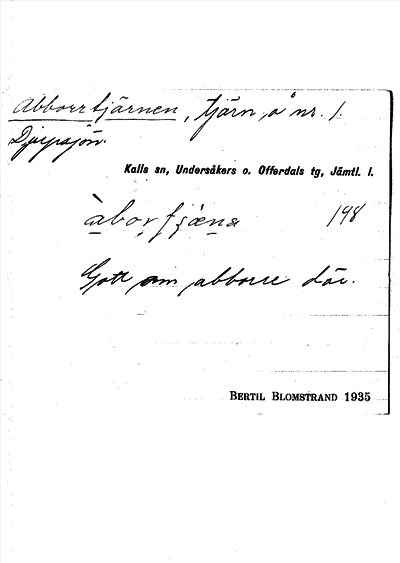 Abborrtjärnen, tjärn, å nr. 1.
Djupsjön.
Kalls sn, Undersåkers o. Offerdals tg, Jämtl. l.
198
Gott om abborre där.
BERTIL BLOMSTRAND 1935